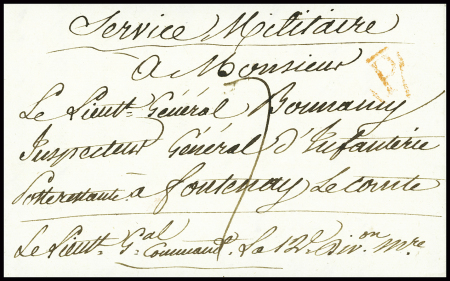 Service Militaire
P
à Monsieur
Le Lieut. Général Bonnamy
Inspecteur Général d'Infanterie
Poste restante à fontenay Le Comte
Le Lieut. Gal Command. La 12e Divon mre